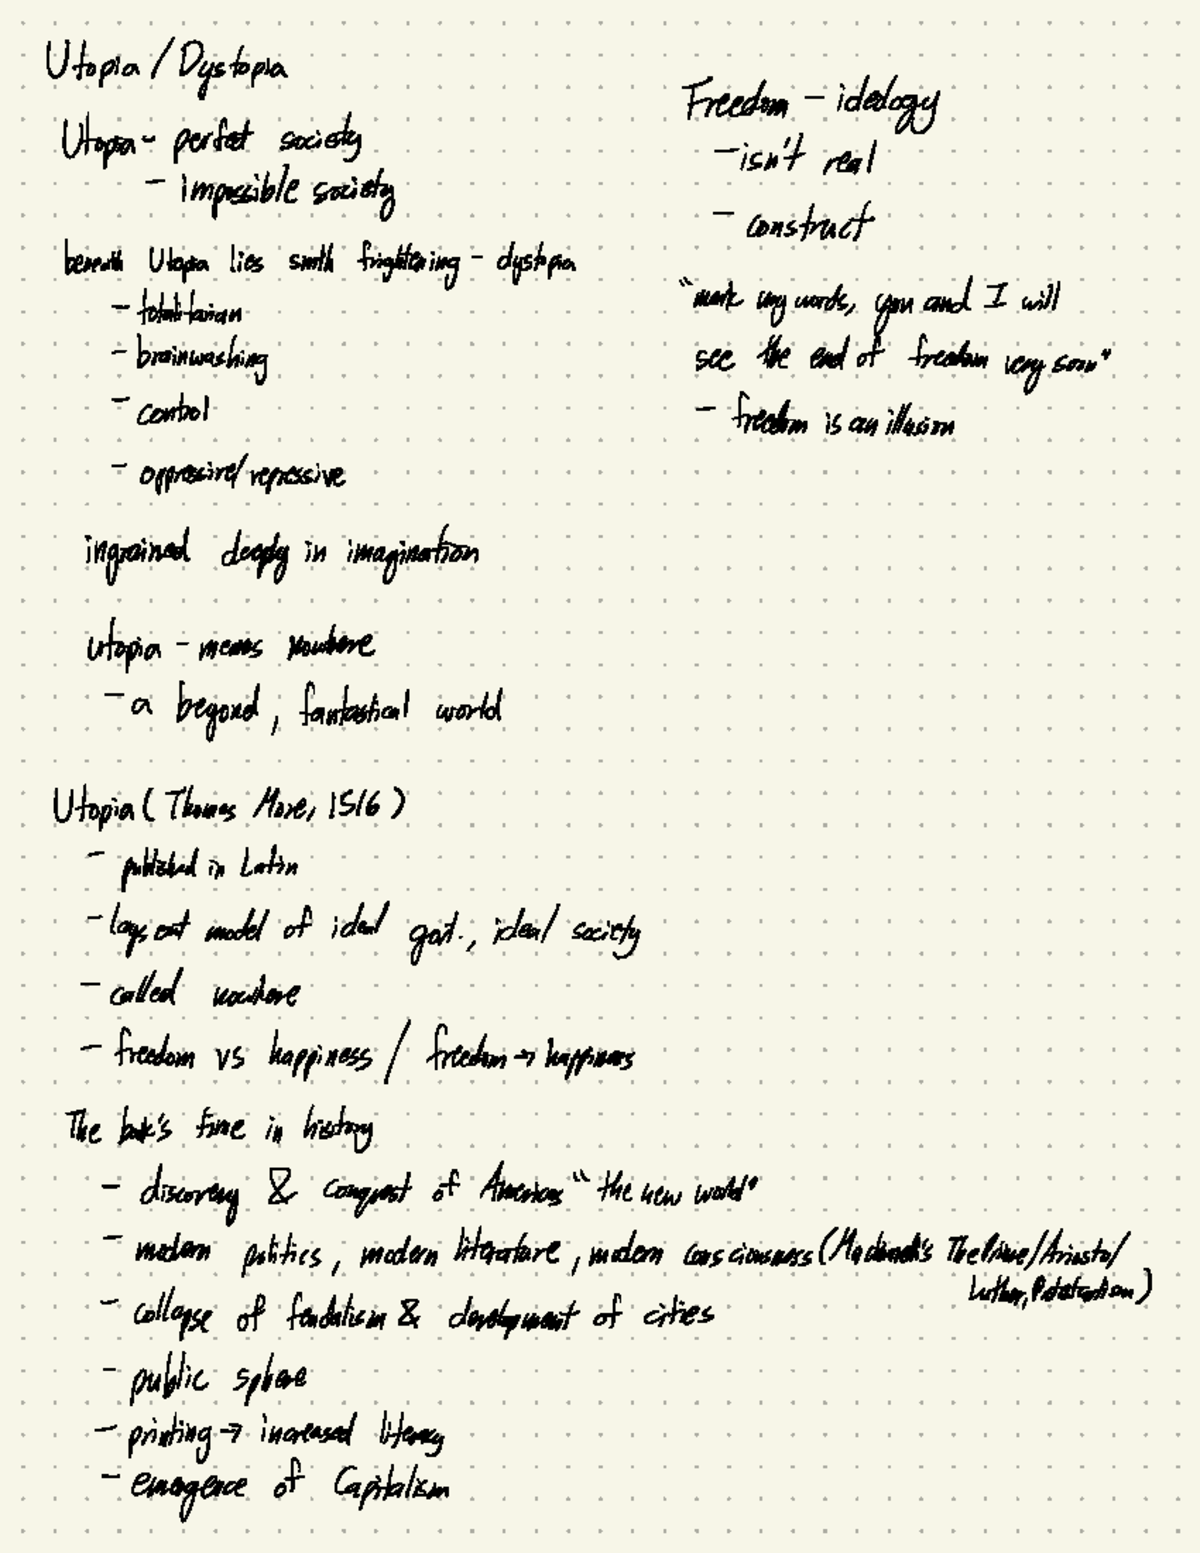 Utopia / Dystopia
Utopia - perfect society
- impossible society
beneath Utopia lies smth frightening - dystopia
- totalitarian
- brainwashing
- control
- oppressive/repressive
ingrained deeply in imagination
utopia - means nowhere
- a beyond, fantastical world
Utopia (Thomas More, 1516)
- published in Latin
- lays out model of ideal govt., ideal society
- called nowhere
- freedom vs happiness / freedom → happiness
The book's time in history
- discovery & conquest of Americas "the new world"
- modern politics, modern literature, modern consciousness (Machiavelli's The Prince/Ariosto/
Luther, Protestantism)
- collapse of feudalism & development of cities
- public sphere
- printing → increased literacy
- emergence of Capitalism
Freedom - ideology
- isn't real
- construct
"mark my words, you and I will
see the end of freedom very soon"
- freedom is an illusion